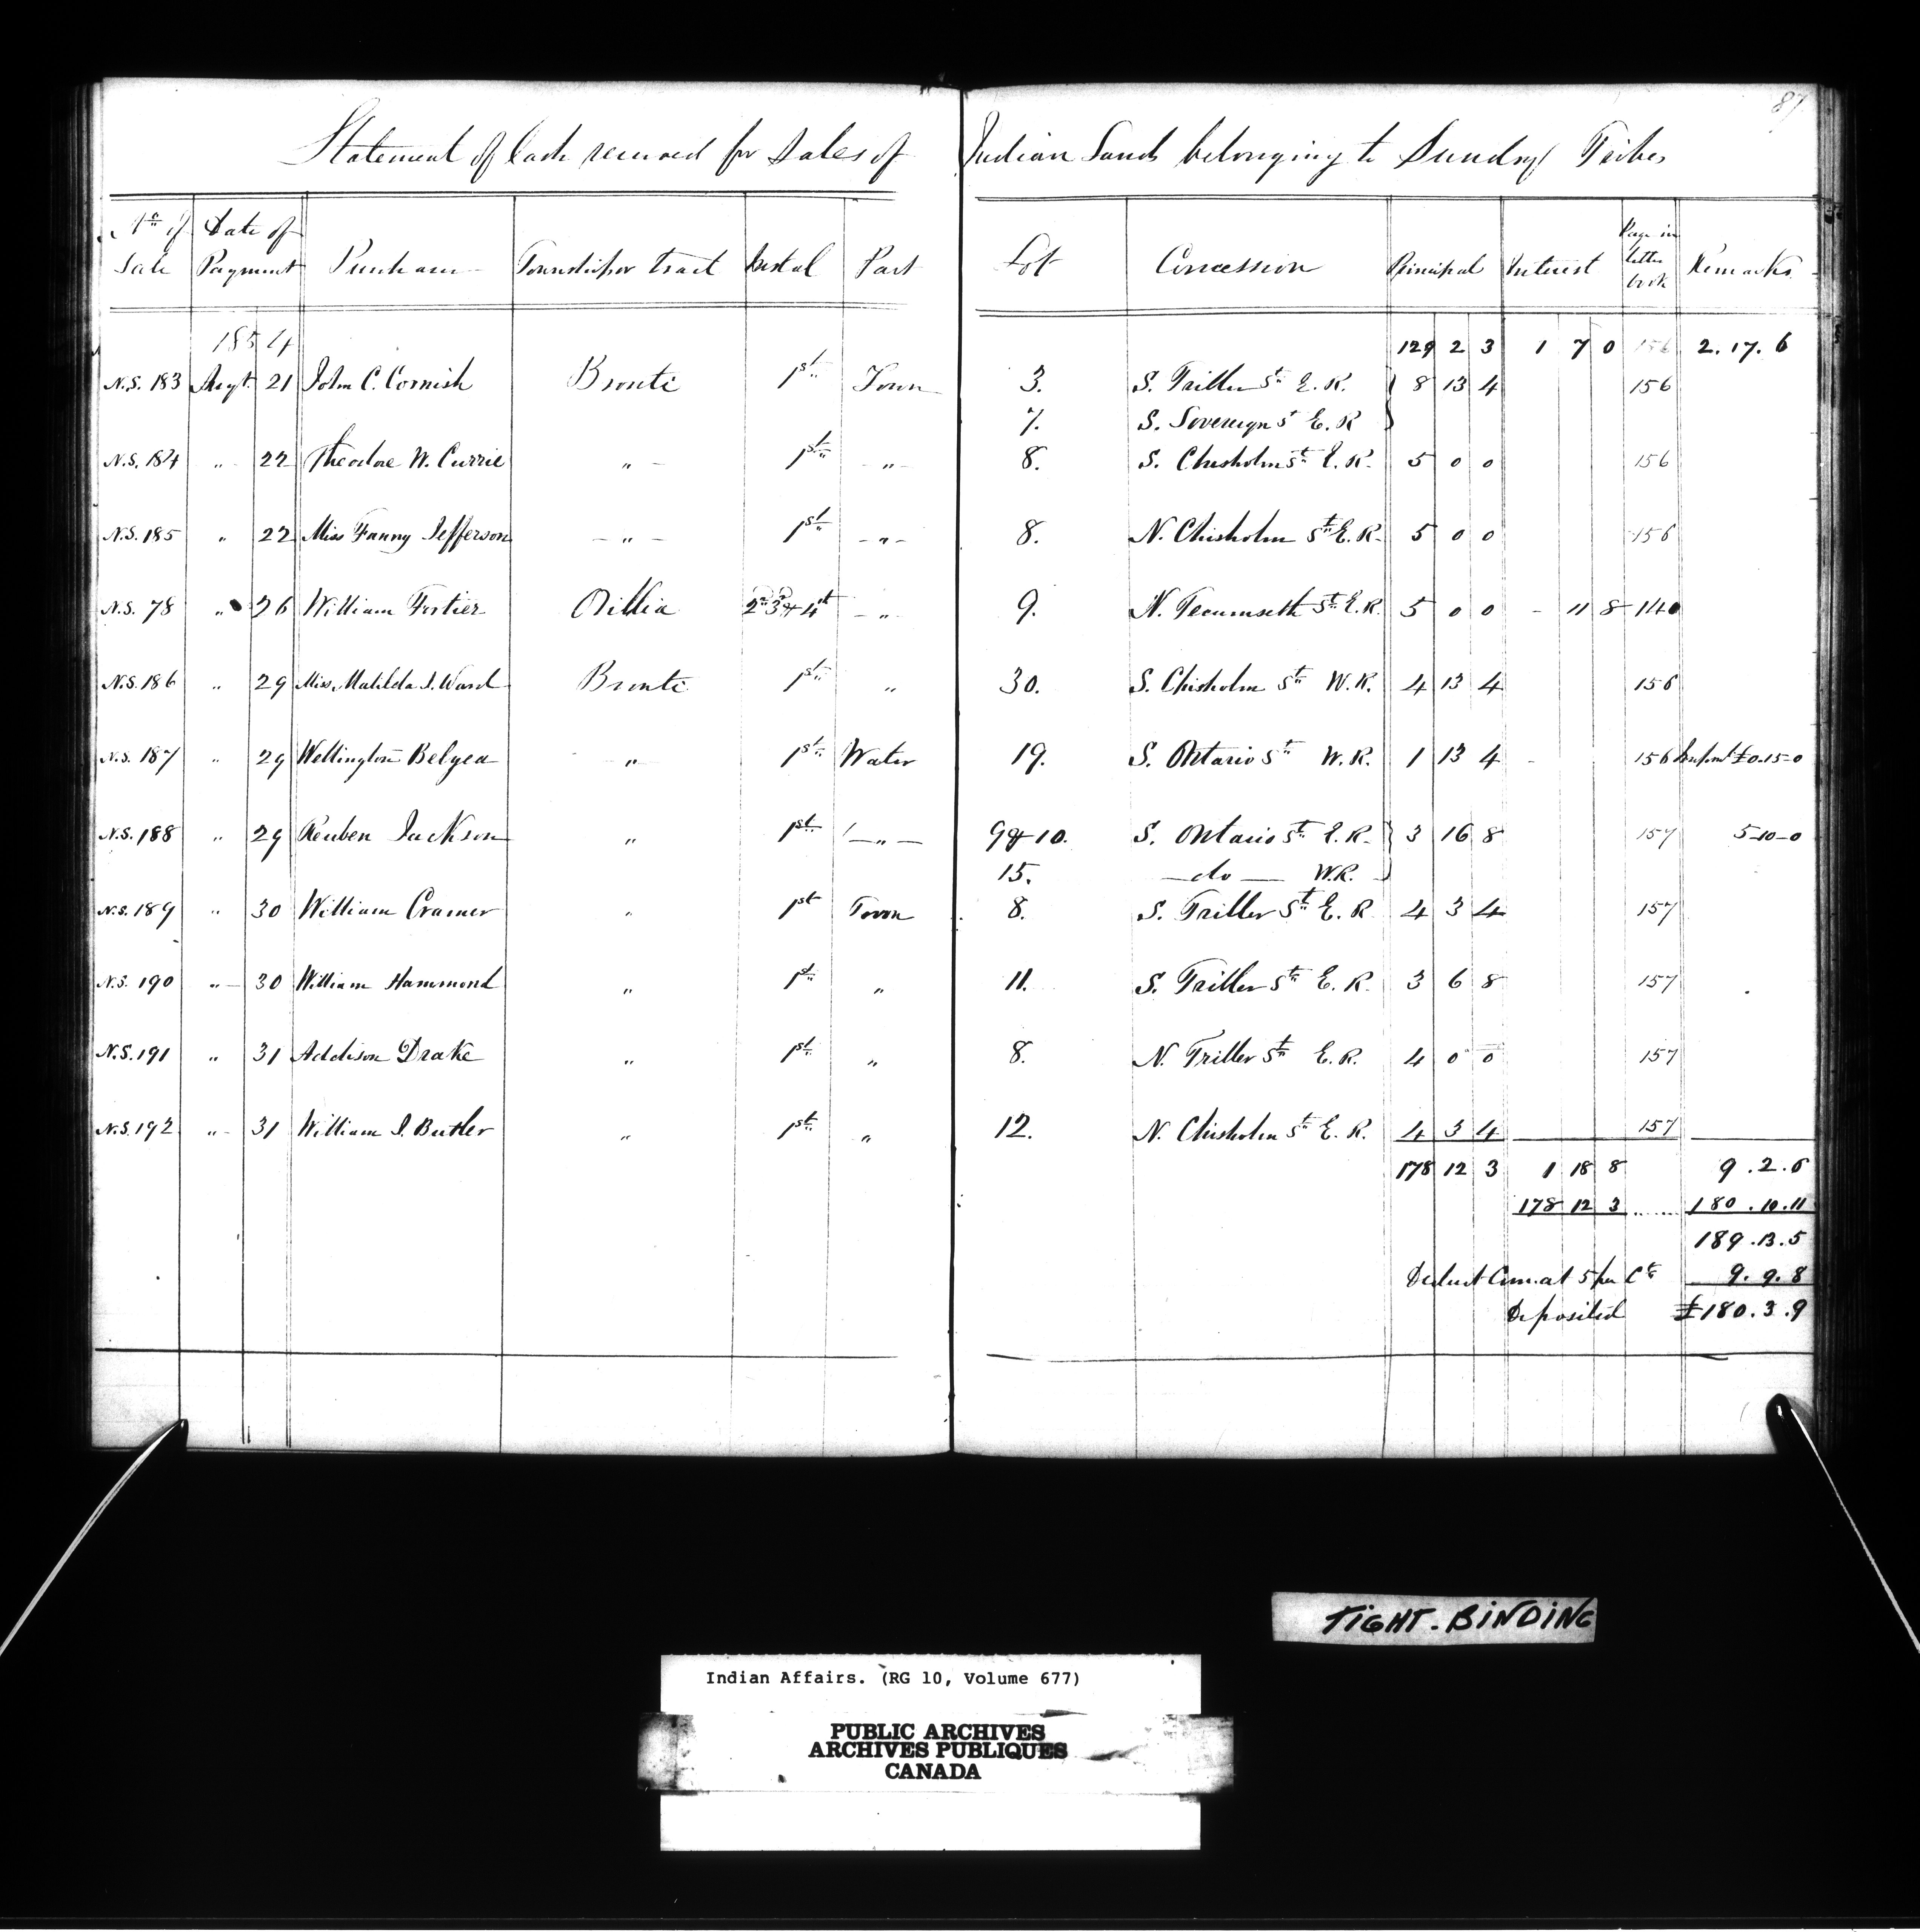 87
Statement of Cash received for Sales of Indian Lands belonging to Sundry Tribes
No of Sale Date of Payment Purchaser Township or tract Instal Part Lot Concession Principal Interest Page in letter book Remarks
1854 129 2 3 1 7 0 156 2.17.6
N.S. 183 Augt 21 John C. Cornish Bronte 1st Town 3. S. Triller St E.R. } 8 13 4 156
7. S. Sovereign St E.R
N.S. 184 " 22 Theodore W. Currie " 1st " 8. S. Chisholm St E.R. 5 0 0 156
N.S. 185 " 22 Miss Fanny Jefferson " 1st " 8. N. Chisholm St E.R. 5 0 0 156
N.S. 78 " 26 William Fortier Orillia 2nd 3d & 4th " 9. N. Tecumseth St E.R. 5 0 0 - 11 8 140
N.S. 186 " 29 Miss Matilda J. Ward Bronte 1st " 30. S. Chisholm St W.R. 4 13 4 156
N.S. 187 " 29 Wellington Belyea " 1st Water 19. S. Ontario St W.R. 1 13 4 156 £0.15-0
N.S. 188 " 29 Reuben Jackson " 1st " 9 & 10. S. Ontario St E.R. } 3 16 8 157 5-10-0
15. do W.R.
N.S. 189 " 30 William Cramer " 1st Town 8. S. Triller St E.R 4 3 4 157
N.S. 190 " 30 William Hammond " 1st " 11. S. Triller St E.R. 3 6 8 157
N.S. 191 " 31 Addison Drake " 1st " 8. N. Triller St E.R. 4 0 0 157
N.S. 192 " 31 William J. Butler " 1st " 12. N. Chisholm St E.R. 4 3 4 157
178 12 3 1 18 8 9.2.6
178 12 3 ...... 180.10.11
189.13.5
Deduct Com. at 5 per Ct 9.9.8
Deposited £180.3.9
TIGHT-BINDING
Indian Affairs. (RG 10, Volume 677)
PUBLIC ARCHIVES
ARCHIVES PUBLIQUES
CANADA